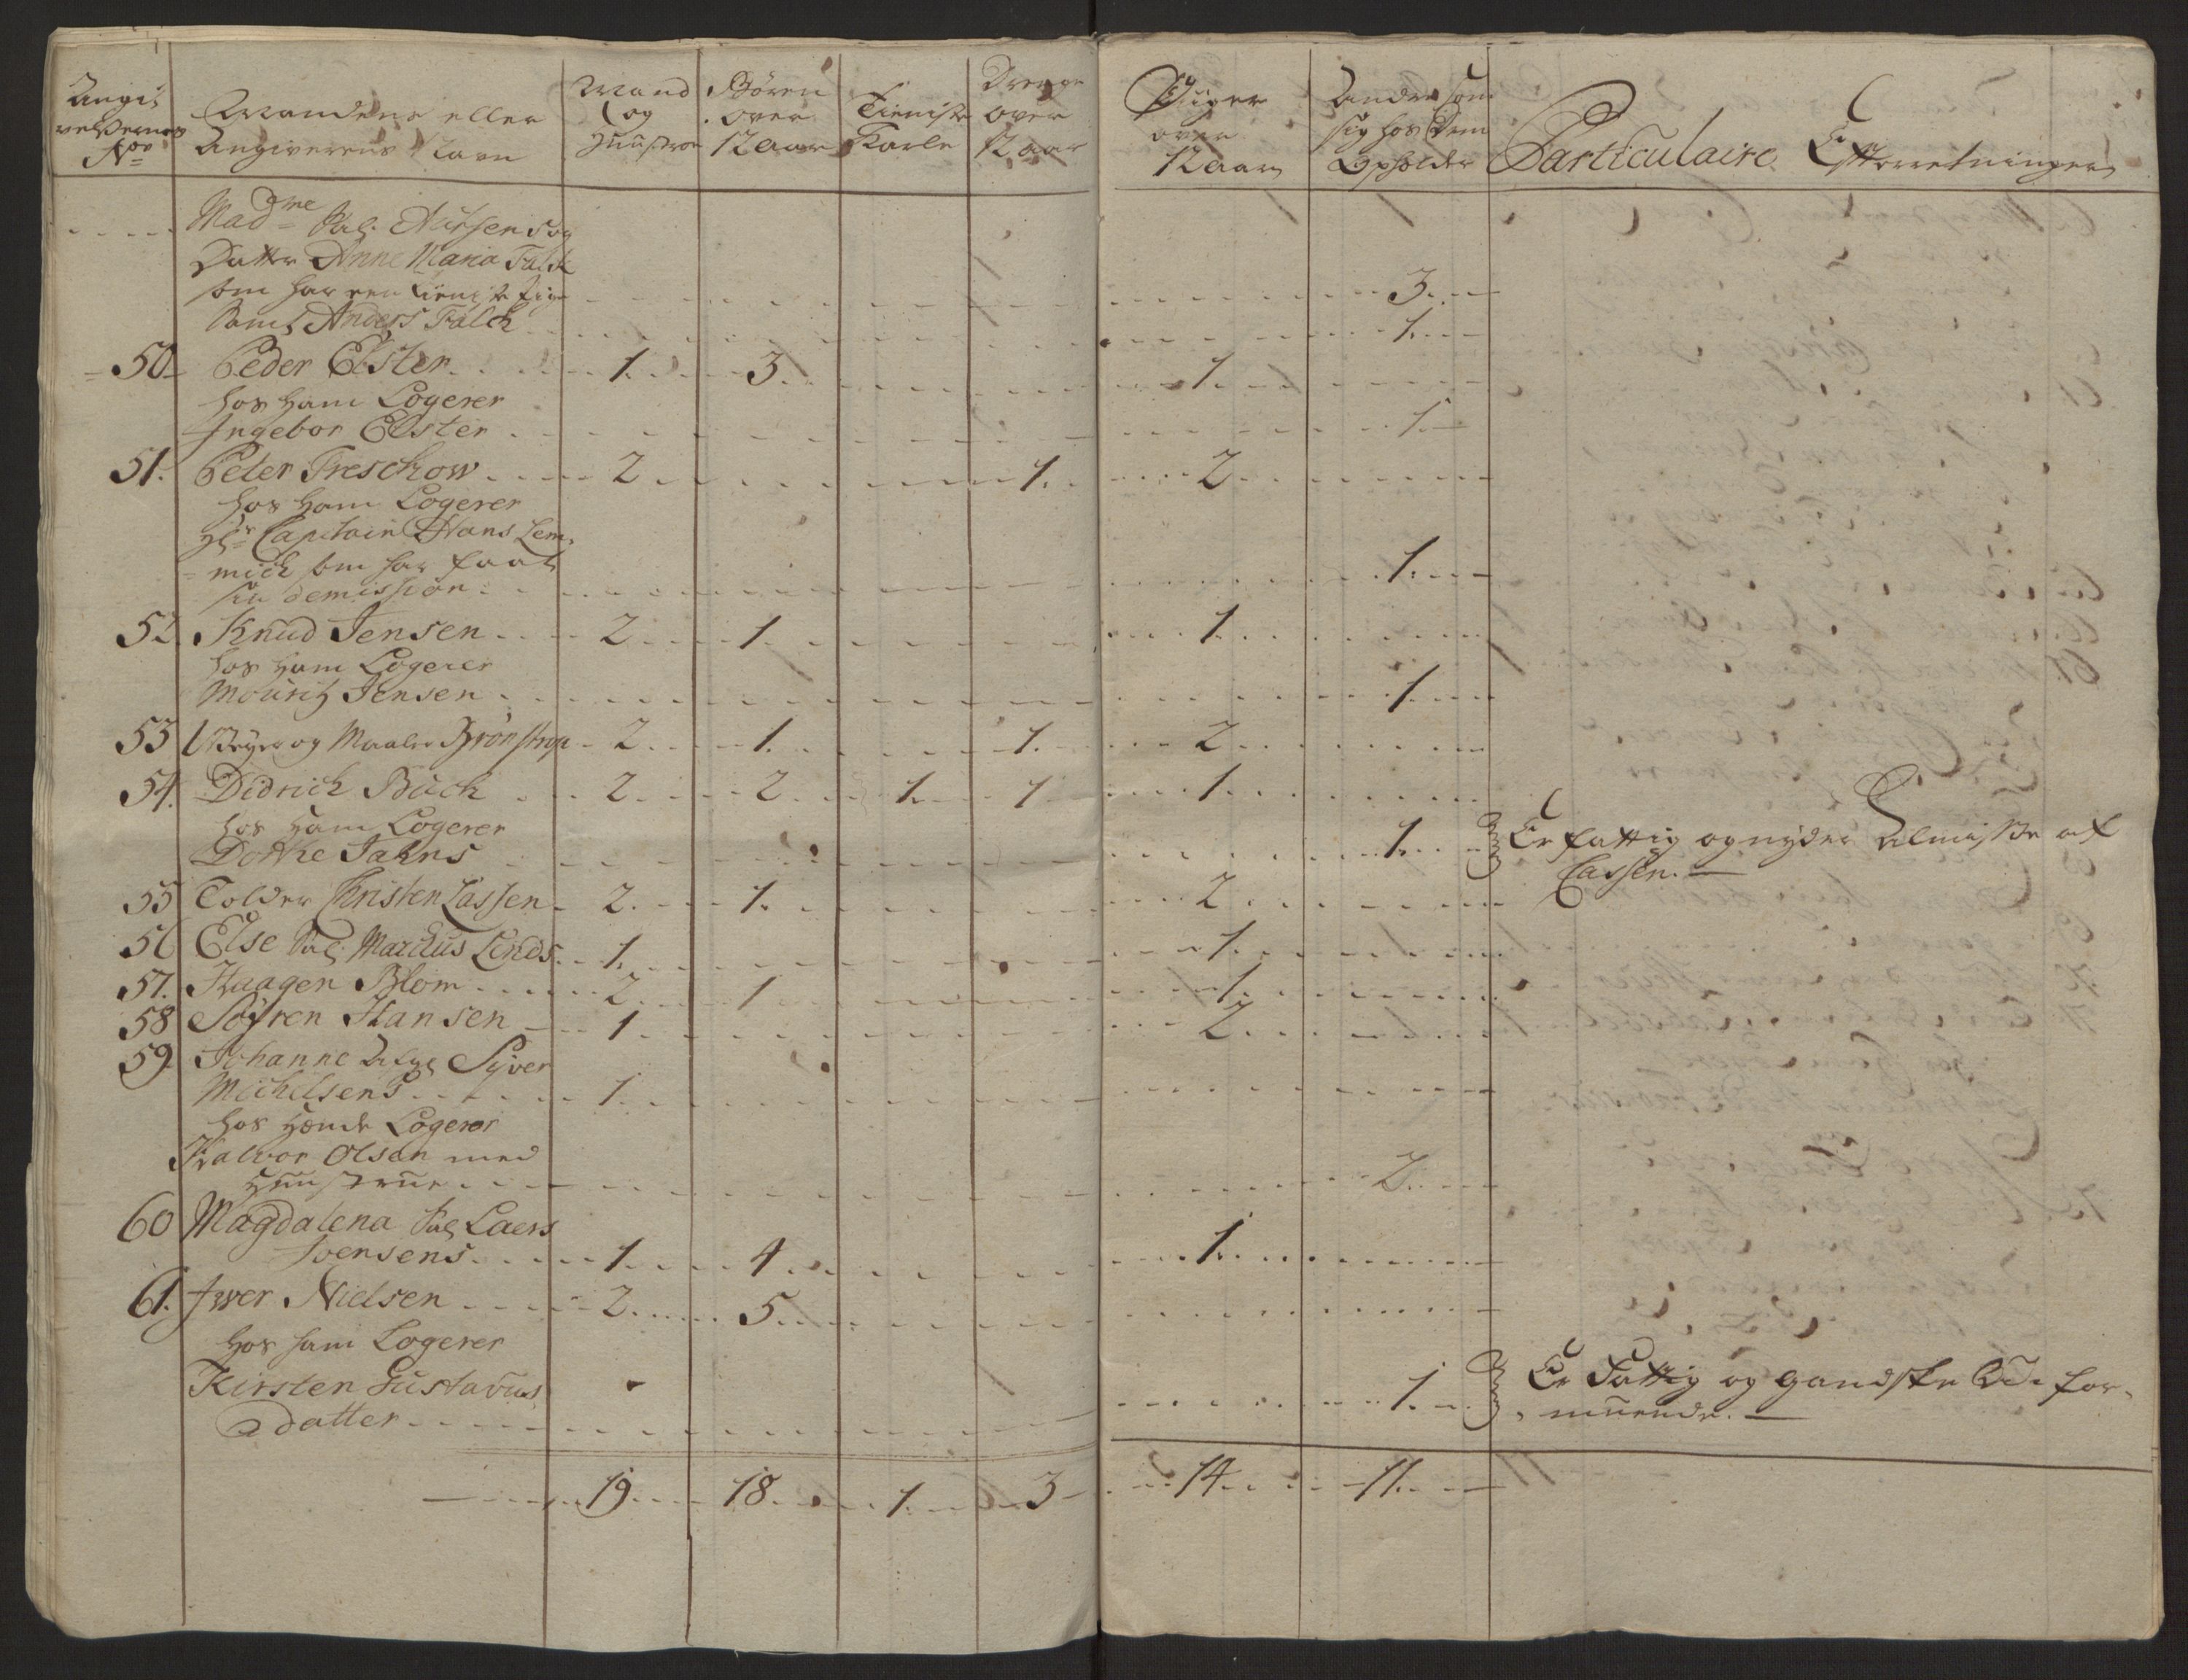 Angi¦velsernes Nor | Mandens eller Angiverens Navn | Mand og Hüustroe | Børen over 12 Aar | Tieniste Karle | Drenge over 12 aar | Piiger over 12 Aar | Andre som sig hos Dem Opholder | Particulaire Efterretninger
Madme Sal.
Datter Anne Maria Falck
som har een tieniste Pige 3
Samt Anders Falck 1
50 Peder Elster 1 3 1
hos ham Logerer
Ingebor Elster 1
51. Peter Treschow 2 1 2
hos ham Logerer
Hr Capitain Hans Lem¦
mich som har faaet
sin demission 1
52. Knud Jensen 2 1 1
hos ham Logerer
Mouritz Jensen 1
53 Veyer og Maaler Brønstrop 2 1 1 2
54. Didrich Buch 2 2 1 1 1
hos ham Logerer
Dothe Jahns 1 Er fattig og nyder Almisse af
Cassen.
55 Tolder Christen Lassen 2 1 2
56 Else Sal. Marckus Linds 1 1
57. Haagen Blom 2 1 1
58 Søfren Hansen 1 2
59 Johanne Salge Syver
Michelsens 1
hos hænde Logerer
Halvor Olsen med
Hüustrüe 2
60 Magdalena Sal Laers
Joensens 1 4 1
61. Iwer Nielsen 2 5
hos ham Logerer
Kirsten Gustavus
datter 1 Er Fattig og gandske Uden for¦
müende.
19 18 1 3 14 11